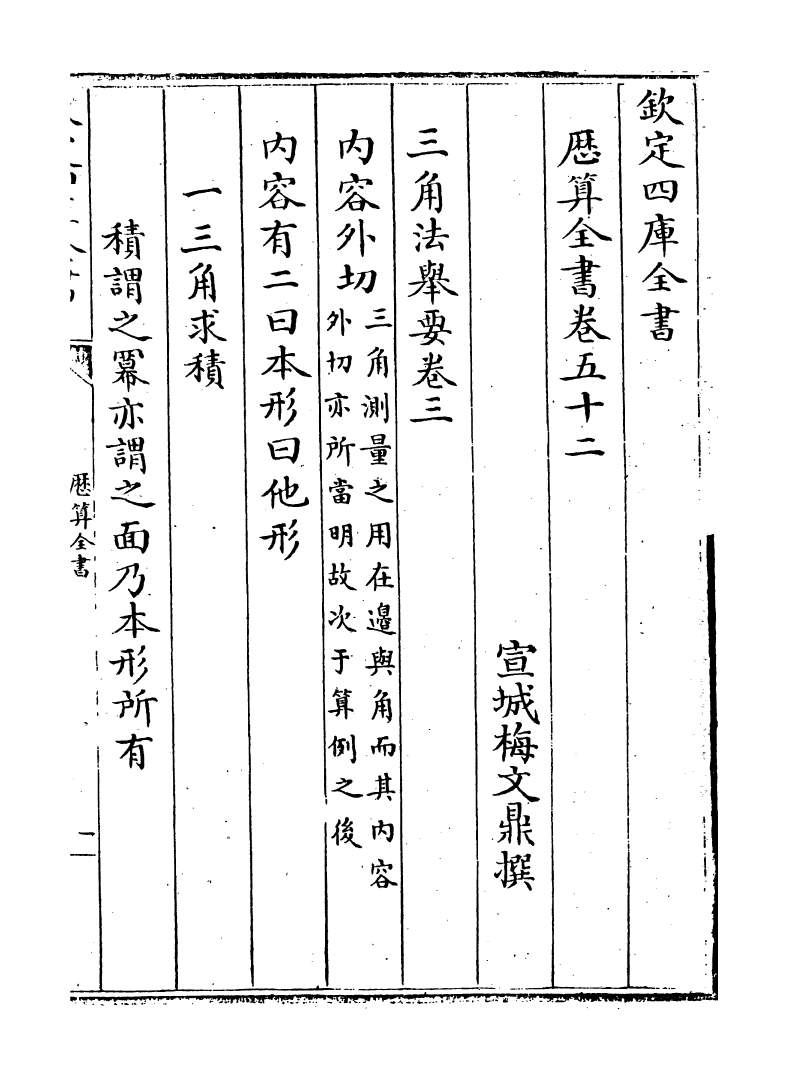 欽定四庫全書
歴算全書卷五十二
宣城梅文鼎撰
三角法舉要卷三
内容外切
三角測量之用在邉與角而其内容
外切亦所當明故次于算例之後
内容有二曰本形曰他形
一三角求積
積謂之冪亦謂之面乃本形所有
歴算全書